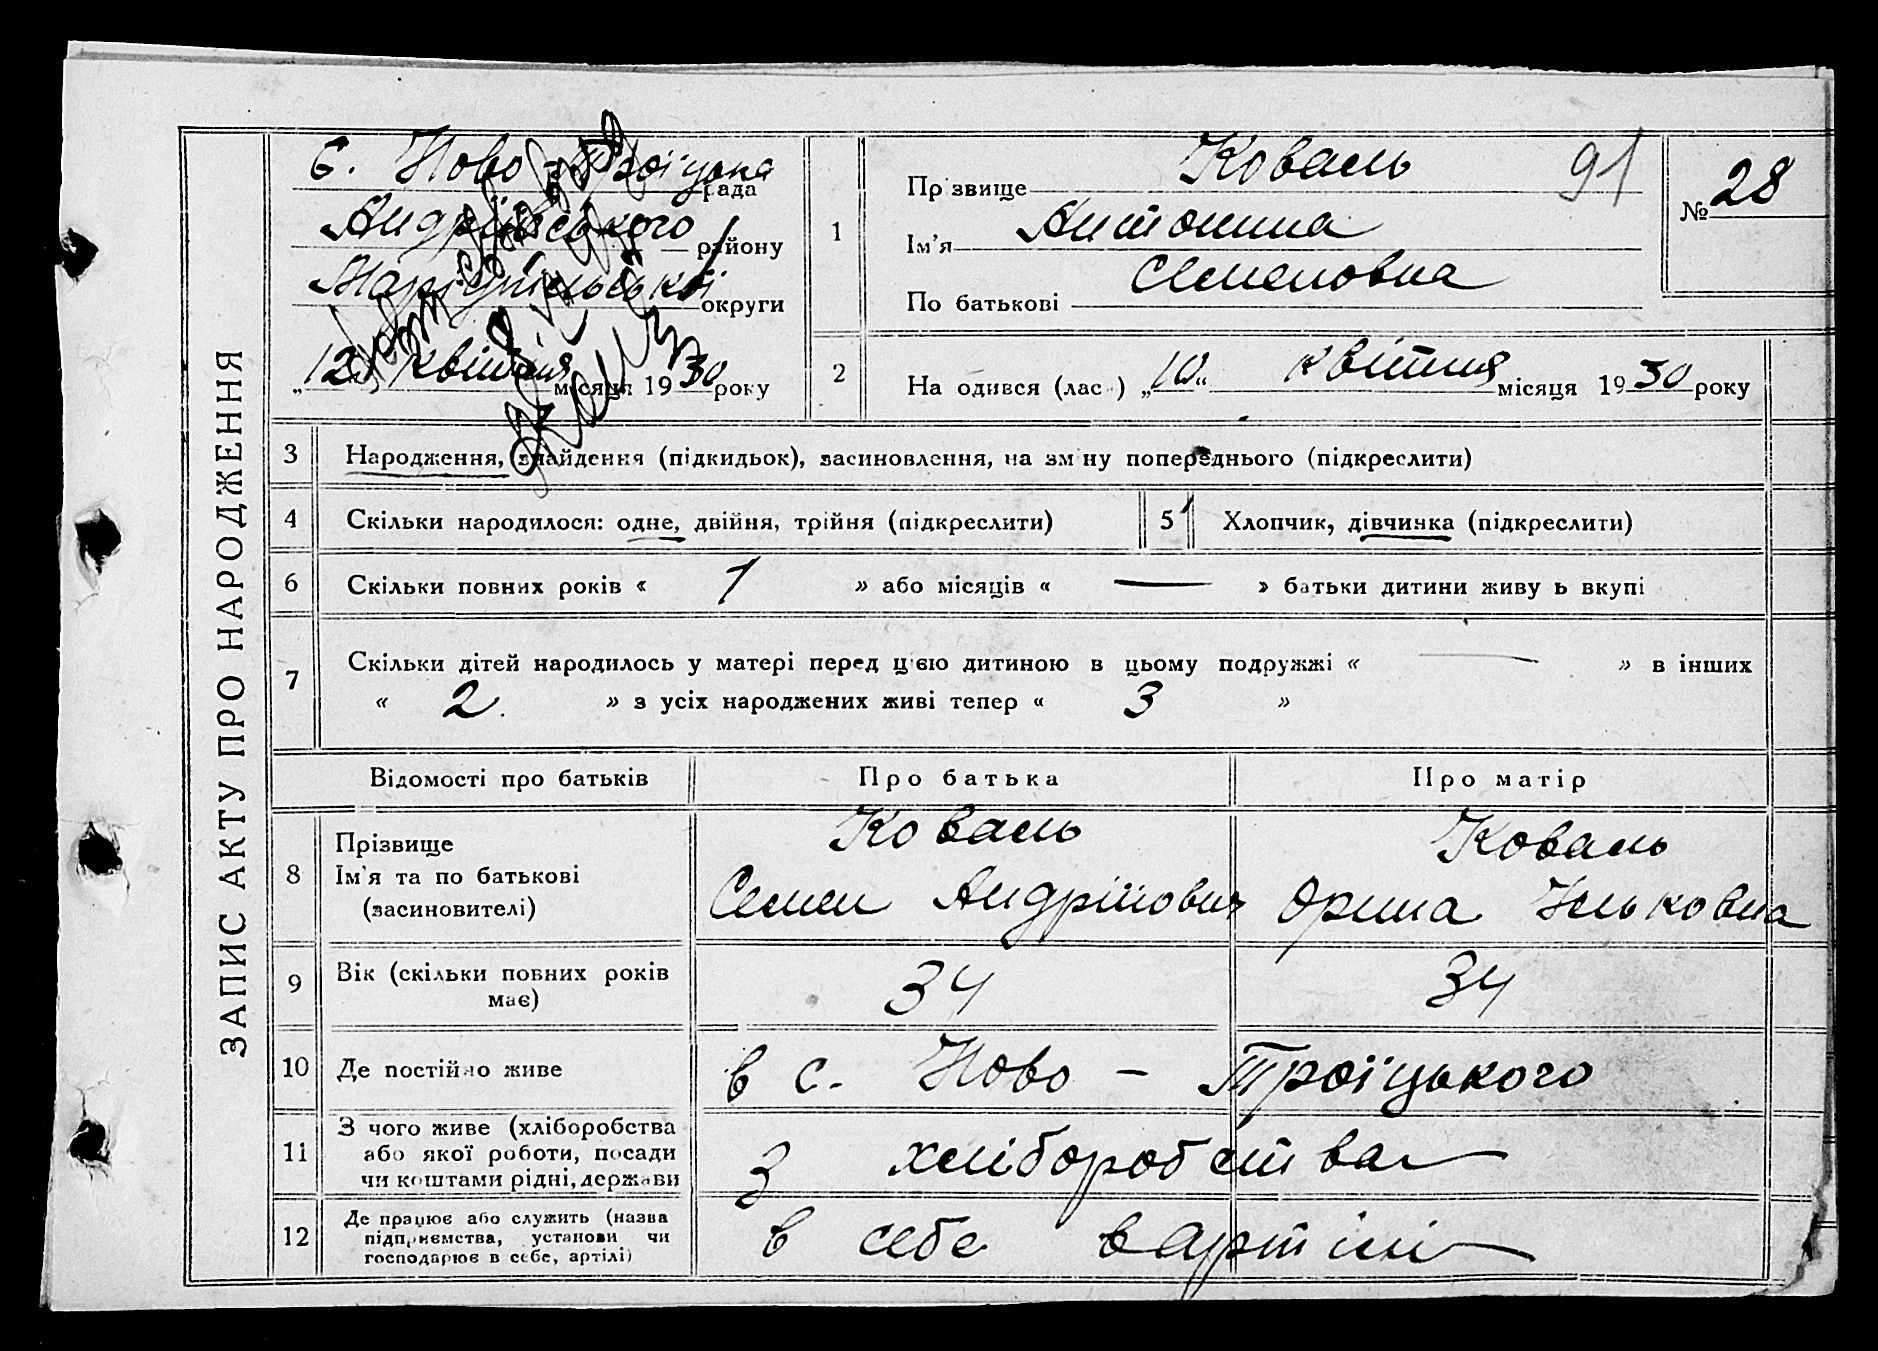 ЗАПИС АКТУ ПРО НАРОДЖЕННЯ
С. Ново-Троїцька рада
Андріївського району
Маріупільської округи
„12“ квітня місяця 1930 року
1
Прізвище Коваль 91
Ім’я Антонина
По батькові Семеновна
№ 28
2
Народився (лась) „10“ квітня місяця 1930 року
3 Народження, знайдення (підкидьок), засиновлення, на зміну попереднього (підкреслити)
4 Скільки народилося: одне, двійня, трійня (підкреслити) 5 Хлопчик, дівчинка (підкреслити)
6 Скільки повних років « 1 » або місяців « — » батьки дитини живуть вкупі
7 Скільки дітей народилось у матері перед цією дитиною в цьому подружжі « — » в інших
« 2. » з усіх народжених живі тепер « 3 »
Відомості про батьків Про батька Про матір
8 Прізвище
Ім’я та по батькові
(засиновителі)
Коваль
Семен Андрійович
Коваль
Орина Ільковна
9 Вік (скільки повних років
має)
34 34
10 Де постійно живе в с. Ново - Троїцького
11 З чого живе (хліборобства
або якої роботи, посади
чи коштами рідні, держави
З хліборобства
12 Де працює або служить (назва
підприємства, установи чи
господарює в себе, артілі)
в себе в артілі